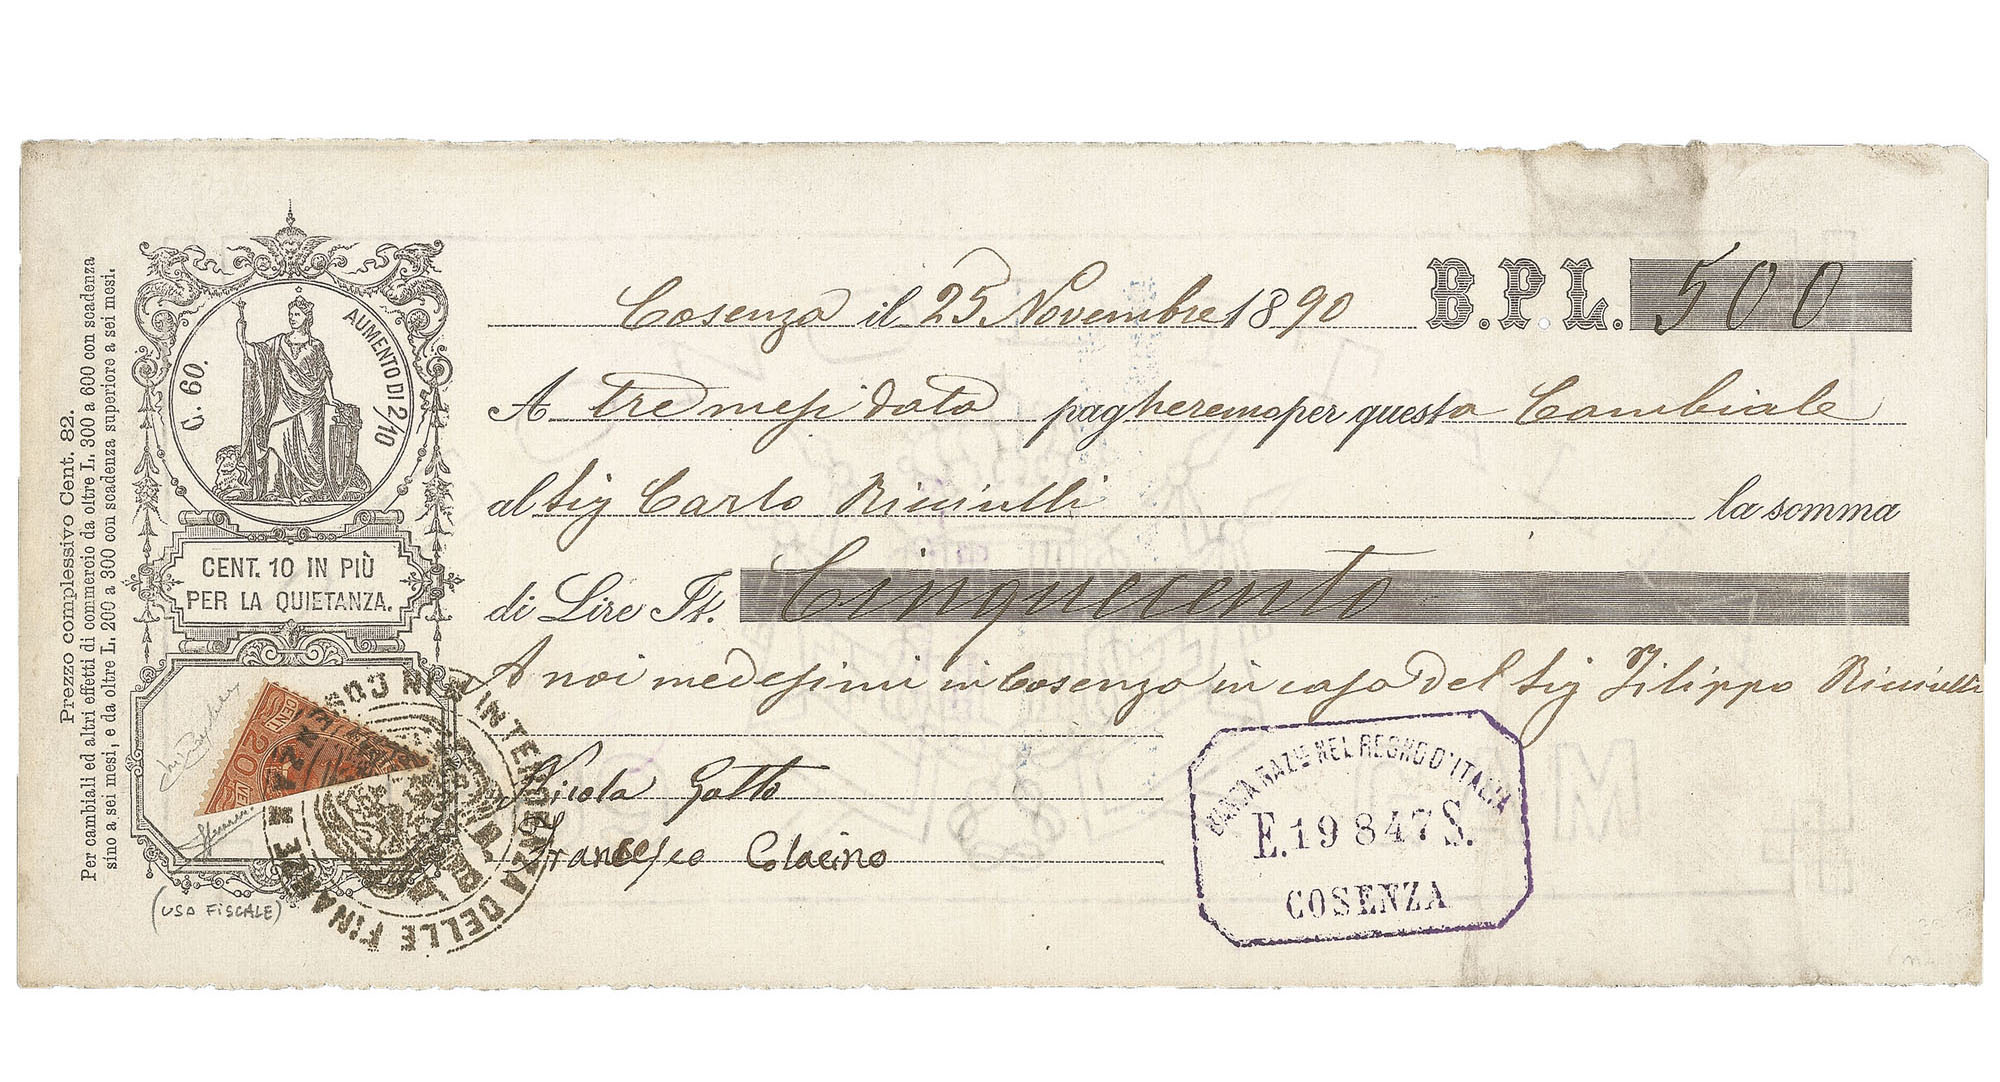 Prezzo complessivo Cent. 82.
Per cambiali ed altri effetti di commercio da oltre L. 300 a 600 con scadenza
sino a sei mesi, e da oltre L. 200 a 300 con scadenza superiore a sei mesi.
C. 60.
AUMENTO DI 2/10
CENT. 10 IN PIÙ
PER LA QUIETANZA.
CENT. 20
(USO FISCALE)
INTENDENZA DELLE FINANZE IN COSENZA
Cosenza il 25 Novembre 1890 B.P.L. 500
A tre mesi data pagheremo per questa Cambiale
al Sig Carlo Ricciulli la somma
di Lire It. Cinquecento
A noi medesimi in Cosenza in casa del Sig Filippo Ricciulli
Nicola Gatto
Francesco Colacino
BANCA NAZLE NEL REGNO D'ITALIA
E. 19847 S.
COSENZA